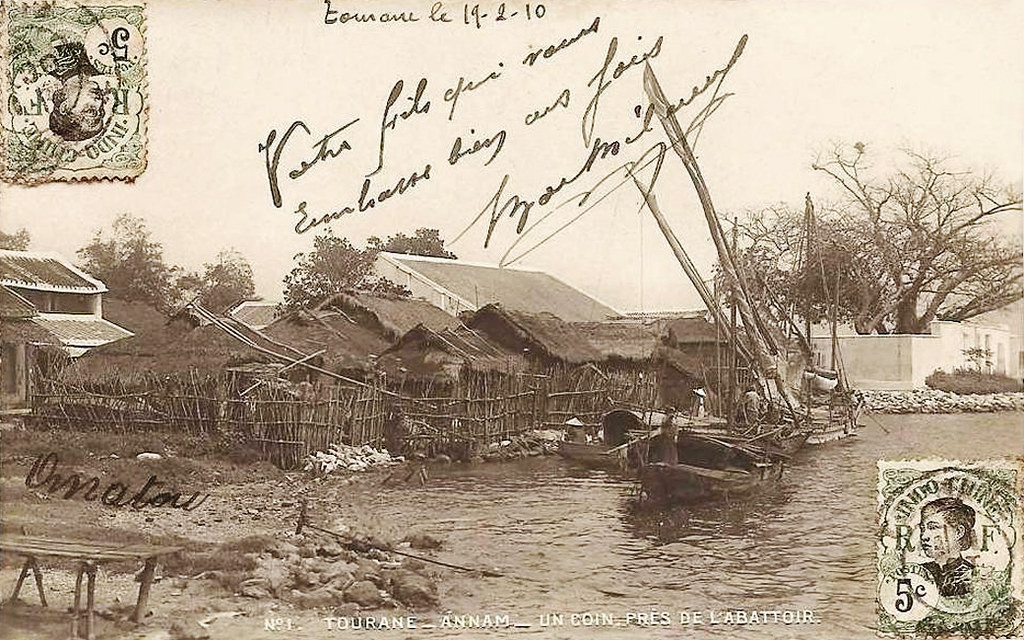 Tourane le 19-2-10
Votre fils qui vous
Embrasse bien des fois
5c
R F
INDO-CHINE
INDO-CHINE
R F
POSTES
5c
Nº1. TOURANE _ ANNAM _ UN COIN PRÈS DE L'ABATTOIR.